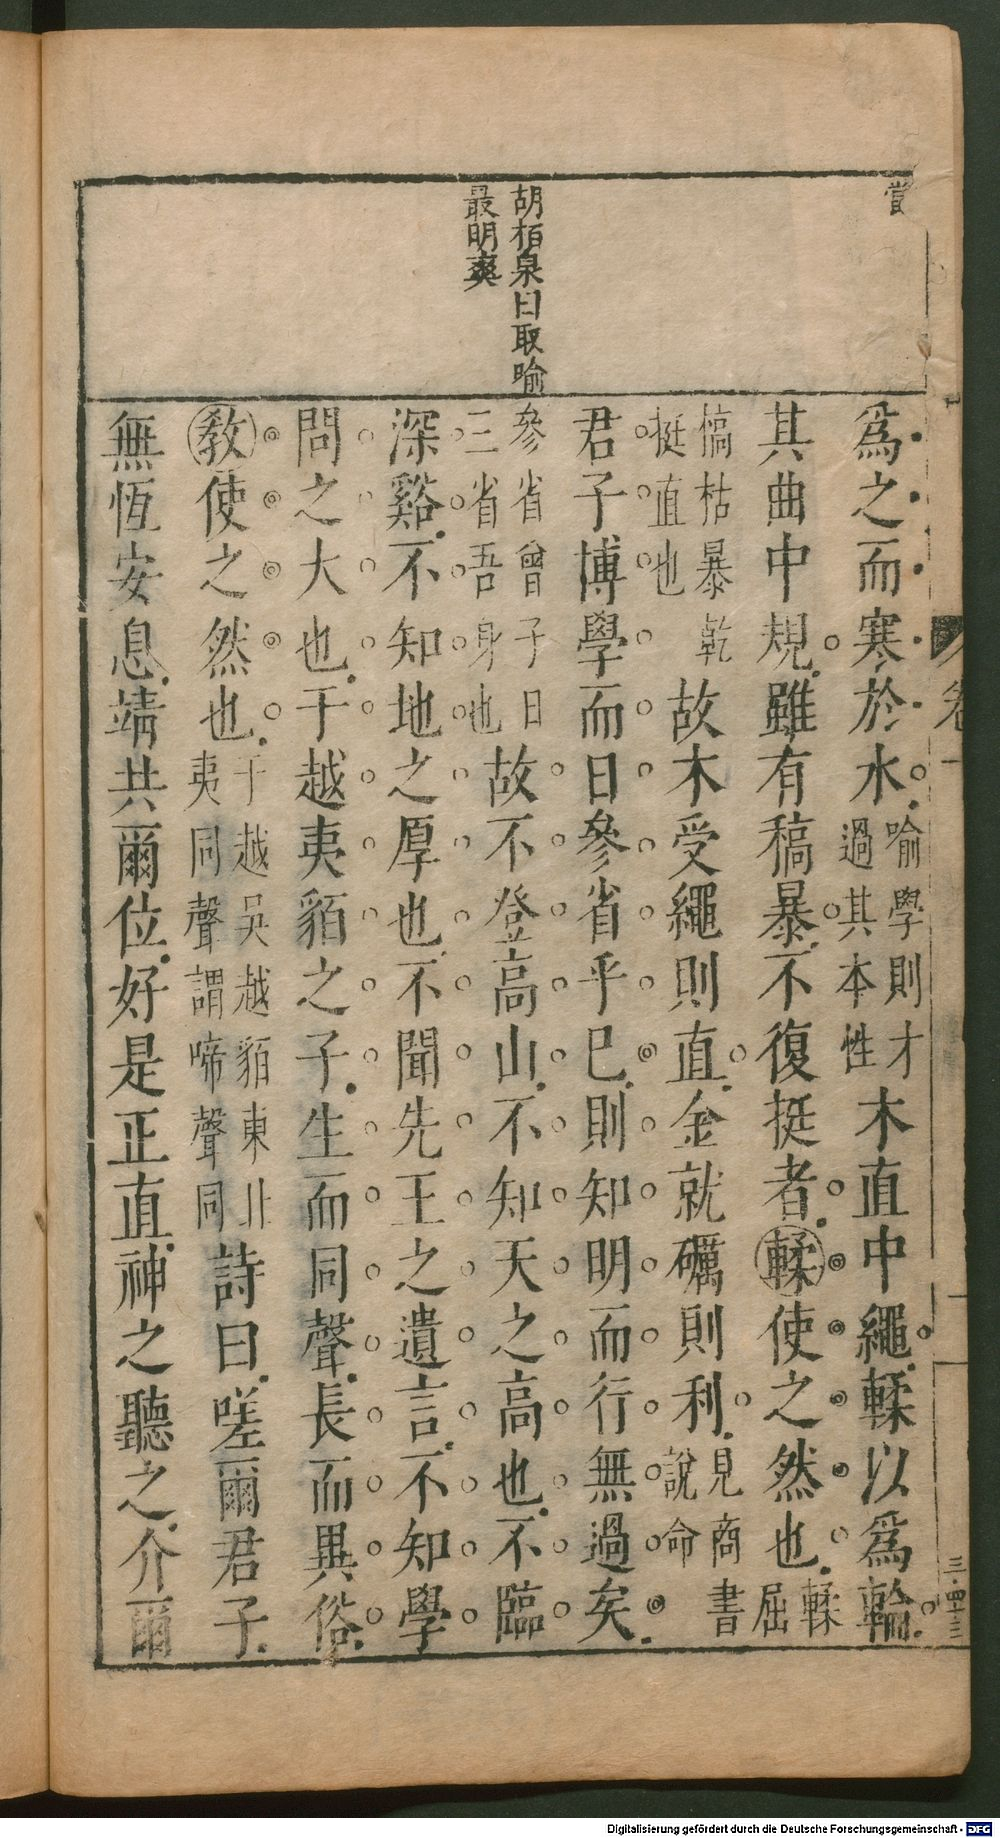 嘗
胡栢泉曰取喻
最明爽
爲之而寒於水喻學則才過其本性木直中繩輮以爲輪
其曲中規雖有稿暴不復挺者輮使之然也輮屈
槁枯暴乾挺直也故木受繩則直金就礪則利見商書說命
君子博學而日參省乎已則知明而行無過矣
參省曾子日三省吾身也故不登高山不知天之高也不臨
深谿不知地之厚也不聞先王之遺言不知學
問之大也于越夷貊之子生而同聲長而異俗
教使之然也于越吳越貊東北夷同聲謂啼聲同詩曰嗟爾君子
無恆安息靖共爾位好是正直神之聽之介爾
卷一
三·四十三
Digitalisierung gefördert durch die Deutsche Forschungsgemeinschaft - DFG